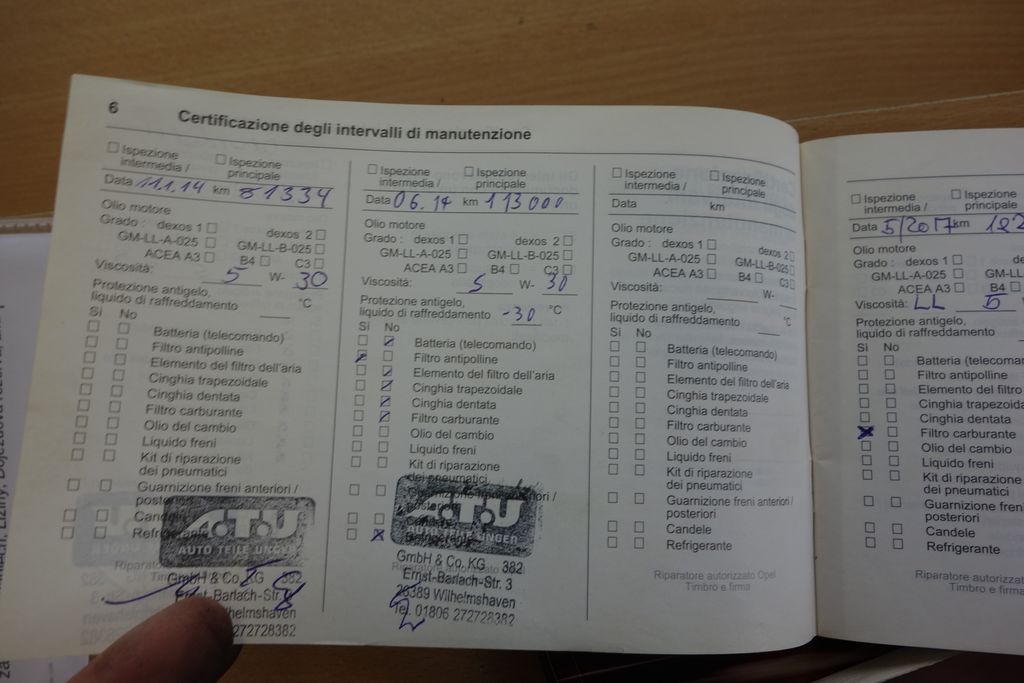 6
Certificazione degli intervalli di manutenzione
Ispezione intermedia / Ispezione principale
Data 11.1.14 km 81334
Olio motore
Grado: dexos 1 dexos 2
GM-LL-A-025 GM-LL-B-025
ACEA A3 B4 C3
Viscosità: 5 W- 30
Protezione antigelo,
liquido di raffreddamento °C
Si No
Batteria (telecomando)
Filtro antipolline
Elemento del filtro dell'aria
Cinghia trapezoidale
Cinghia dentata
Filtro carburante
Olio del cambio
Liquido freni
Kit di riparazione
dei pneumatici
Guarnizione freni anteriori /
posteriori
Refrigerante
A.T.U
AUTO TEILE UNGER
GmbH & Co. KG 382
Ernst-Barlach-Str.
Wilhelmshaven
272728382
Ispezione intermedia / Ispezione principale
Data 06.14 km 113000
Olio motore
Grado: dexos 1 dexos 2
GM-LL-A-025 GM-LL-B-025
ACEA A3 B4 C3
Viscosità: 5 W- 30
Protezione antigelo,
liquido di raffreddamento -30 °C
Si No
Batteria (telecomando)
Filtro antipolline
Elemento del filtro dell'aria
Cinghia trapezoidale
Cinghia dentata
Filtro carburante
Olio del cambio
Liquido freni
Kit di riparazione
dei pneumatici
Guarnizione freni anteriori /
posteriori
Candele
Refrigerante
A.T.U
AUTO TEILE UNGER
GmbH & Co. KG 382
Ernst-Barlach-Str. 3
26389 Wilhelmshaven
Tel. 01806 272728382
Ispezione intermedia / Ispezione principale
Data km
Olio motore
Grado: dexos 1 dexos 2
GM-LL-A-025 GM-LL-B-025
ACEA A3 B4 C3
Viscosità: W-
Protezione antigelo,
liquido di raffreddamento °C
Si No
Batteria (telecomando)
Filtro antipolline
Elemento del filtro dell'aria
Cinghia trapezoidale
Cinghia dentata
Filtro carburante
Olio del cambio
Liquido freni
Kit di riparazione
dei pneumatici
Guarnizione freni anteriori /
posteriori
Candele
Refrigerante
Riparatore autorizzato Opel
Timbro e firma
Ispezione intermedia / Ispezione principale
Data 5/2017 km
Olio motore
Grado: dexos 1
GM-LL-A-025
ACEA A3 B4
Viscosità: LL 5
Protezione antigelo,
liquido di raffreddamento
Si No
Batteria
Filtro antipolline
Elemento del filtro
Cinghia
Cinghia dentata
Filtro carburante
Olio del cambio
Liquido freni
Kit di riparazione
dei pneumatici
Guarnizione freni
posteriori
Candele
Refrigerante
Riparatore
Timbro e firma